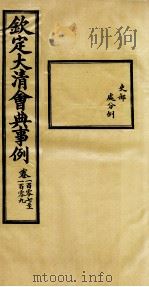 欽定大清會典事例
卷一百零七至
一百零九
吏部
處分例